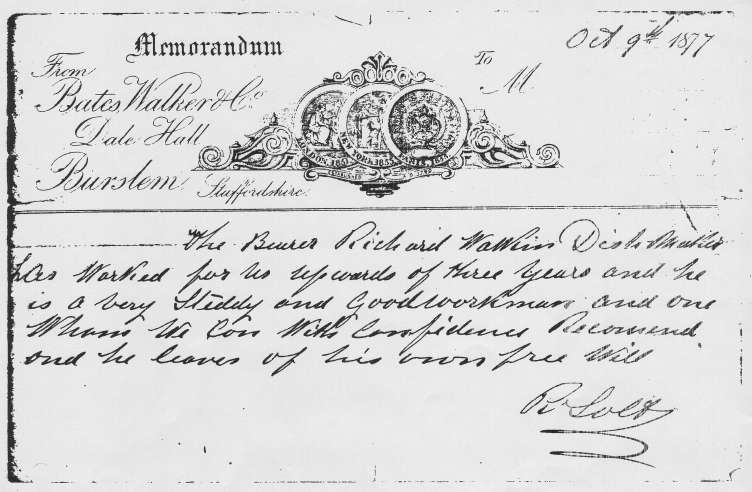 Memorandum
Oct 9th 1877
From
To
M
Bates, Walker & Co.
Dale Hall
Burslem
Staffordshire.
LONDON 1851
NEW YORK 1853
PARIS
The Bearer Richard Watkin Dish Maker
has Worked for us upwards of three years and he
is a very Steddy and Good workman and one
Whom We Can With Confidence Recomend
and he leaves of his own free Will
R Solt